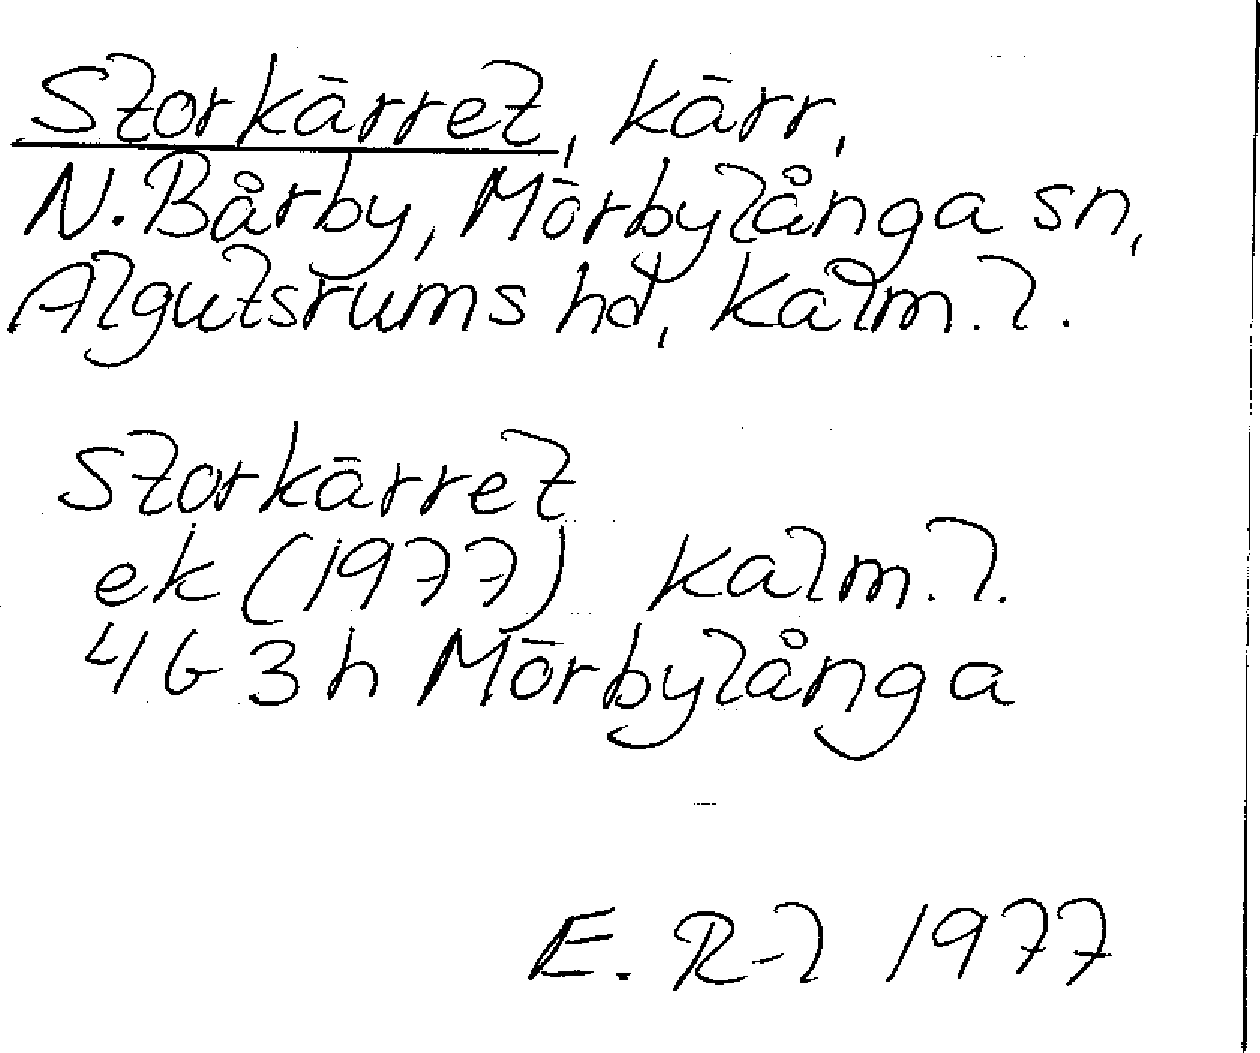 Storkärret, kärr,
N. Bårby, Mörbylånga sn,
Algutsrums hd, Kalm. l.
Storkärret
ek (1977) Kalm. l.
4G 3h Mörbylånga
E. R-l 1977